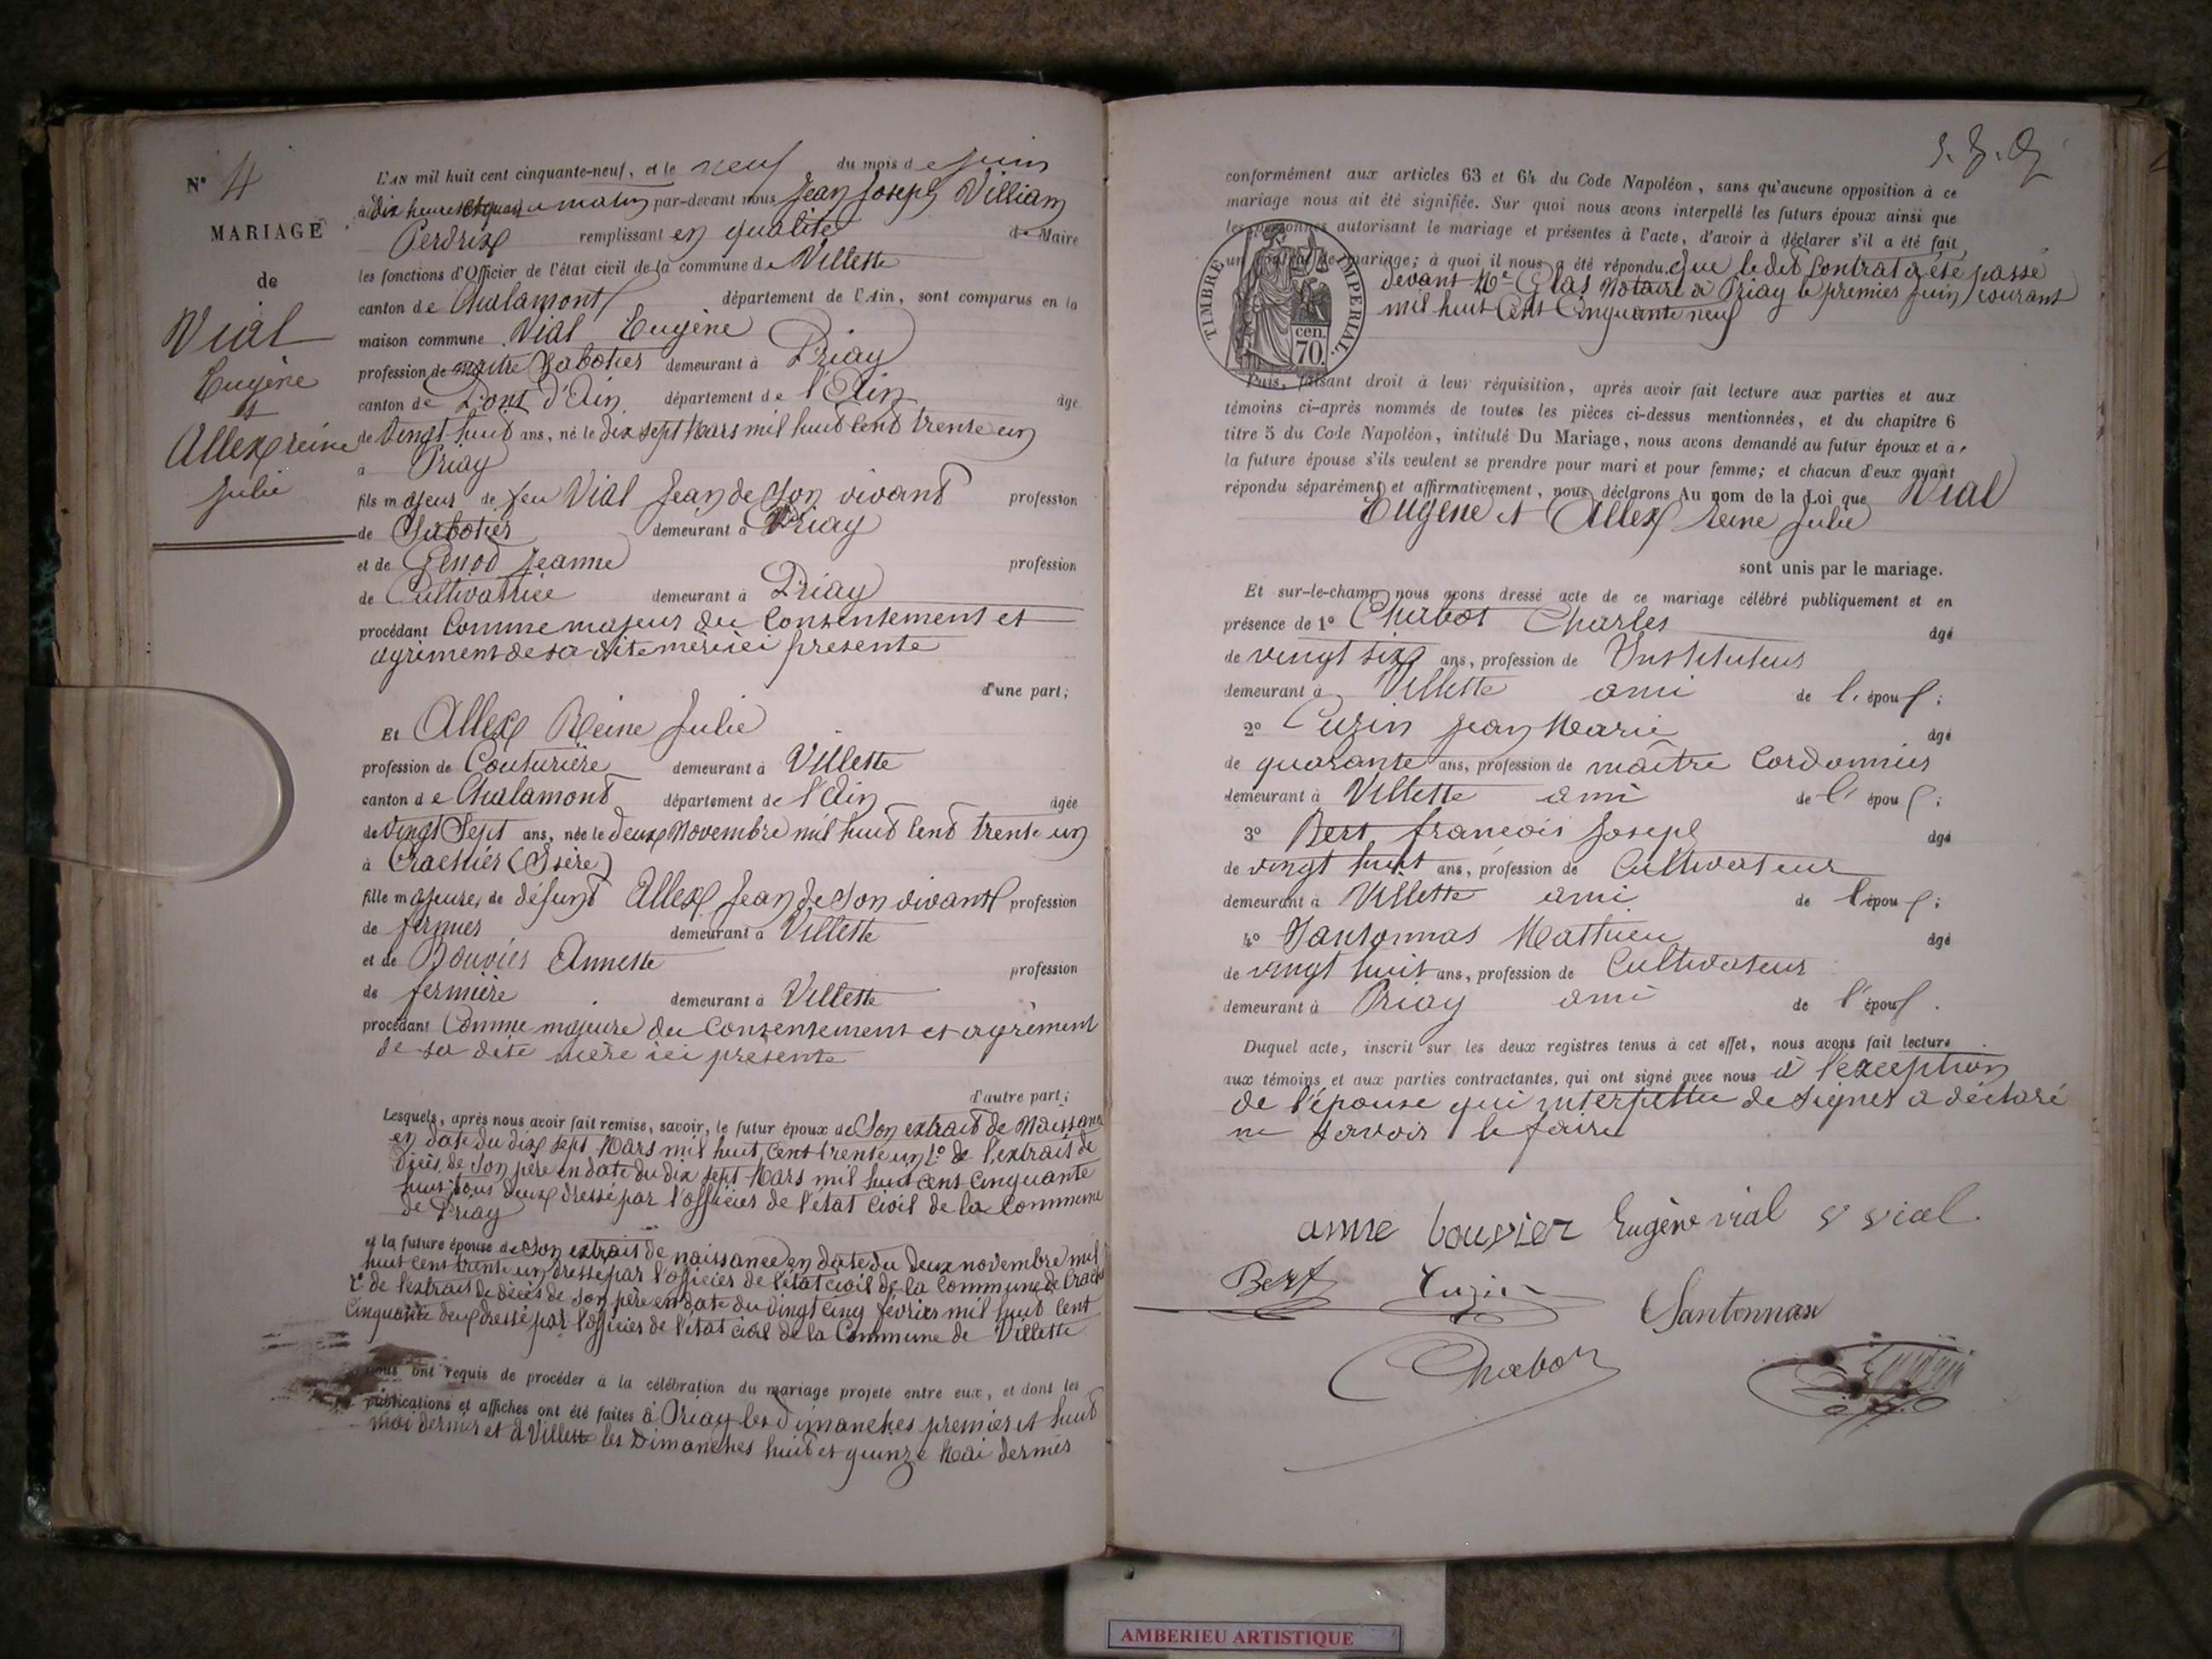 N° 4
MARIAGE
de
Vial
Eugène
et
Allex reine
Julie
L'AN mil huit cent cinquante-neuf, et le neuf du mois de Juin
à dix heures du matin par-devant nous Jean Joseph William
Perdrix remplissant en qualité de Maire
les fonctions d'Officier de l'état civil de la commune de Villette
canton de Chalamont département de l'Ain, sont comparus en la
maison commune Vial Eugène
profession de maitre Sabotier demeurant à Priay
canton de Pont d'Ain département de l'Ain âgé
de vingt huit ans, né le dix sept Mars mil huit Cent trente un
à Priay
fils majeur de feu Vial Jean de Son vivant profession
de Sabotier demeurant à Priay
et de Genod Jeanne profession
de Cultivatrice demeurant à Priay
procédant Comme majeur du Consentement et
agrément de sa dite mère ici présente
d'une part;
Et Allex Reine Julie
profession de Couturière demeurant à Villette
canton de Chalamont département de l'Ain âgée
de vingt Sept ans, née le deux Novembre mil huit Cent trente un
à Crachier (Isère)
fille majeure de défunt Allex Jean de Son vivant profession
de fermier demeurant à Villette
et de Bouvier Annette profession
de fermière demeurant à Villette
procédant Comme majeure du Consentement et agrément
de sa dite mère ici présente
d'autre part;
Lesquels, après nous avoir fait remise, savoir, le futur époux de Son extrait de Naissance
en date du dix sept Mars mil huit cent trente un 2° de l'extrait de
Décès de Son père en date du dix sept Mars mil huit cent Cinquante
huit tous deux dressé par l'officier de l'état Civil de la Commune
de Priay
et la future épouse de Son extrait de naissance en date du deux novembre mil
huit Cent trente un dressé par l'officier de l'état civil de la Commune de Crachier
2° de l'extrait de décès de Son père en date du vingt cinq février mil huit cent
Cinquante deux dressé par l'officier de l'état civil de la Commune de Villette
nous ont requis de procéder à la célébration du mariage projeté entre eux, et dont les
publications et affiches ont été faites à Priay les Dimanches premier et huit
mai dernier et à Villette les Dimanches huit et quinze Mai dernier
conformément aux articles 63 et 64 du Code Napoléon, sans qu'aucune opposition à ce
mariage nous ait été signifiée. Sur quoi nous avons interpellé les futurs époux ainsi que
les personnes autorisant le mariage et présentes à l'acte, d'avoir à déclarer s'il a été fait
un contrat de mariage; à quoi il nous a été répondu que ledit Contrat a été passé
devant Me Glas Notaire à Priay le premier Juin courant
mil huit Cent Cinquante neuf
TIMBRE IMPERIAL
cen.
70.
Puis, faisant droit à leur réquisition, après avoir fait lecture aux parties et aux
témoins ci-après nommés de toutes les pièces ci-dessus mentionnées, et du chapitre 6
titre 5 du Code Napoléon, intitulé Du Mariage, nous avons demandé au futur époux et à
la future épouse s'ils veulent se prendre pour mari et pour femme; et chacun d'eux ayant
répondu séparément et affirmativement, nous déclarons Au nom de la Loi que Vial
Eugène et Allex reine Julie
sont unis par le mariage.
Et sur-le-champ nous avons dressé acte de ce mariage célébré publiquement et en
présence de 1° Chabot Charles âgé
de vingt six ans, profession de Instituteur
demeurant à Villette ami de l'époux;
2° Cuzin Jean Marie âgé
de quarante ans, profession de maître Cordonnier
demeurant à Villette ami de l'époux;
3° Bert françois Joseph âgé
de vingt huit ans, profession de Cultivateur
demeurant à Villette ami de l'époux;
4° Santonnas Mathieu âgé
de vingt huit ans, profession de Cultivateur
demeurant à Priay ami de l'époux.
Duquel acte, inscrit sur les deux registres tenus à cet effet, nous avons fait lecture
aux témoins et aux parties contractantes, qui ont signé avec nous à l'exception
de l'épouse qui interpellée de signer a déclaré
ne savoir le faire
anne bouvier Eugène vial vial
Bert Cuzin
Santonnax
Chabot
AMBERIEU ARTISTIQUE